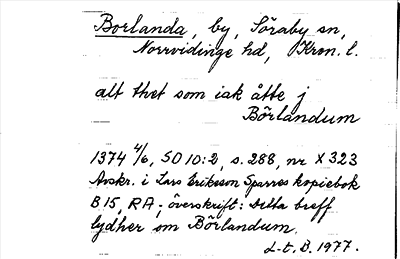 Borlanda, by, Söraby sn,
Norrvidinge hd, Kron. l.
alt thet som iak åtte j
Börlandum
1374 4/6, SD 10:2, s. 288, nr X 323
Avskr. i Lars Erikeson Sparres kopiebok
B 15, RA; överskrift: Detta breff
lydher om Börlandum.
L-t. B. 1977.